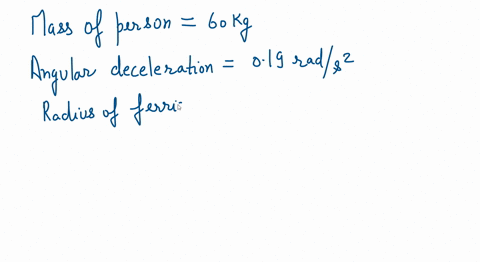 Mass of person = 60 Kg
Angular deceleration = 0.19 rad/s²
Radius of ferri